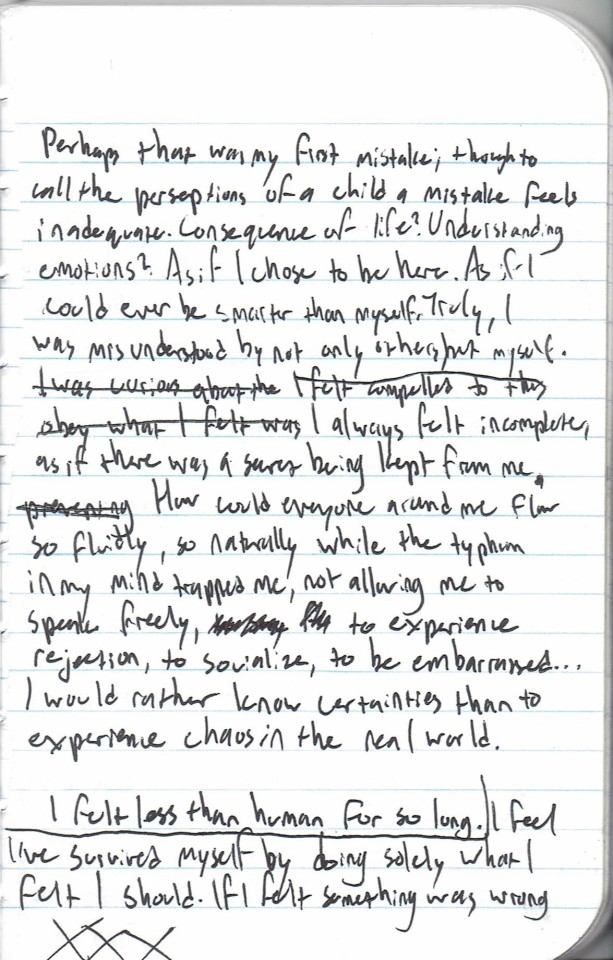 Perhaps that was my first mistake; though to
call the perseptions of a child a mistake feels
inadequate. Consequence of life? Understanding
emotions? As if I chose to be here. As if I
could ever be smarter than myself. Truly, I
was misunderstood by not only others, but myself.
I was curious about the I felt compelled to this
obey what I felt was I always felt incomplete,
as if there was a secret being kept from me.
preventing How could everyone around me flow
so fluidly, so naturally while the typhon
in my mind trapped me, not allowing me to
speak freely, to experience
rejection, to socialize, to be embarrassed...
I would rather know certainties than to
experience chaos in the real world.
I felt less than human for so long. I feel
I've survived myself by doing solely what I
felt I should. If I felt something was wrong